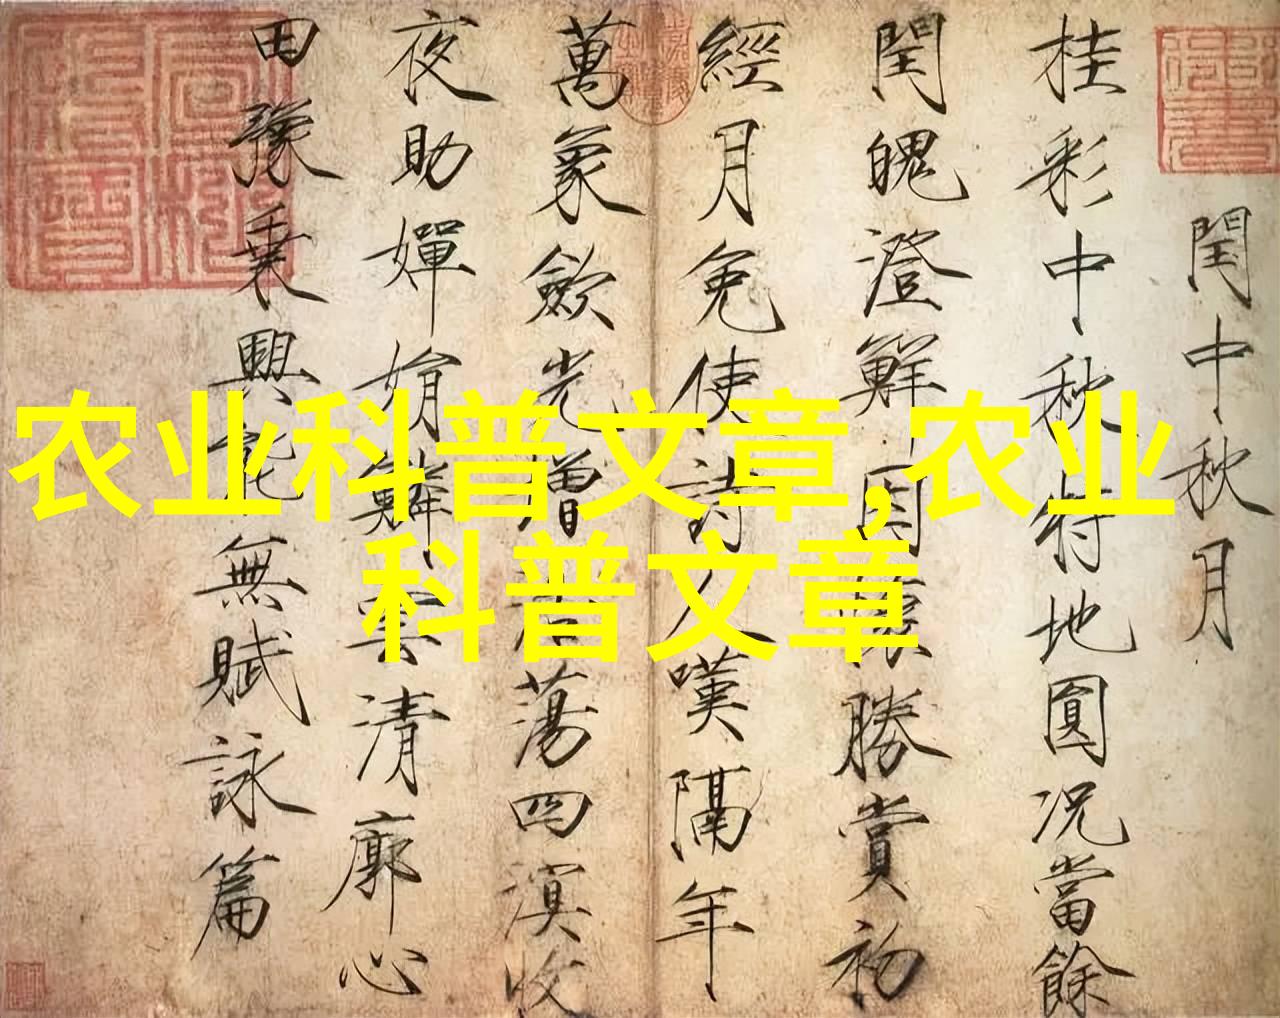 閏中秋月
桂彩中秋特地圓况當餘
閏魄澄鮮因懷勝賞初
經月免使詩人嘆隔年
萬象歛光增浩蕩四溟收
夜助嬋娟鱗雲清廓心
田豫乗興能無賦詠篇
农业科普文章,农业
科普文章